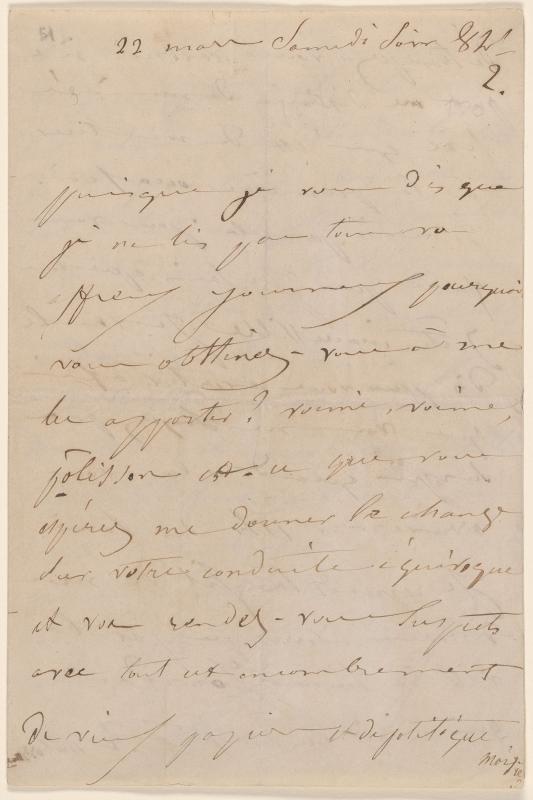 22 mars Samedi soir 8h ½
2.
puisque je vous dis que
je ne lis pas tous vos
affreux journaux pourquoi
vous obstinez-vous à me
les apporter? voime, voime,
pôlisson est-ce que vous
espérez me donner le change
sur votre conduite équivoque
et vos rendez-vous suspects
avec tout cet encombrement
de vieux papiers et de politique